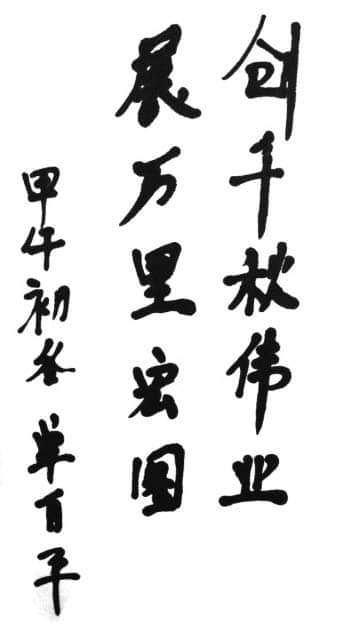 创千秋伟业
展万里宏图
甲午初冬 单百平